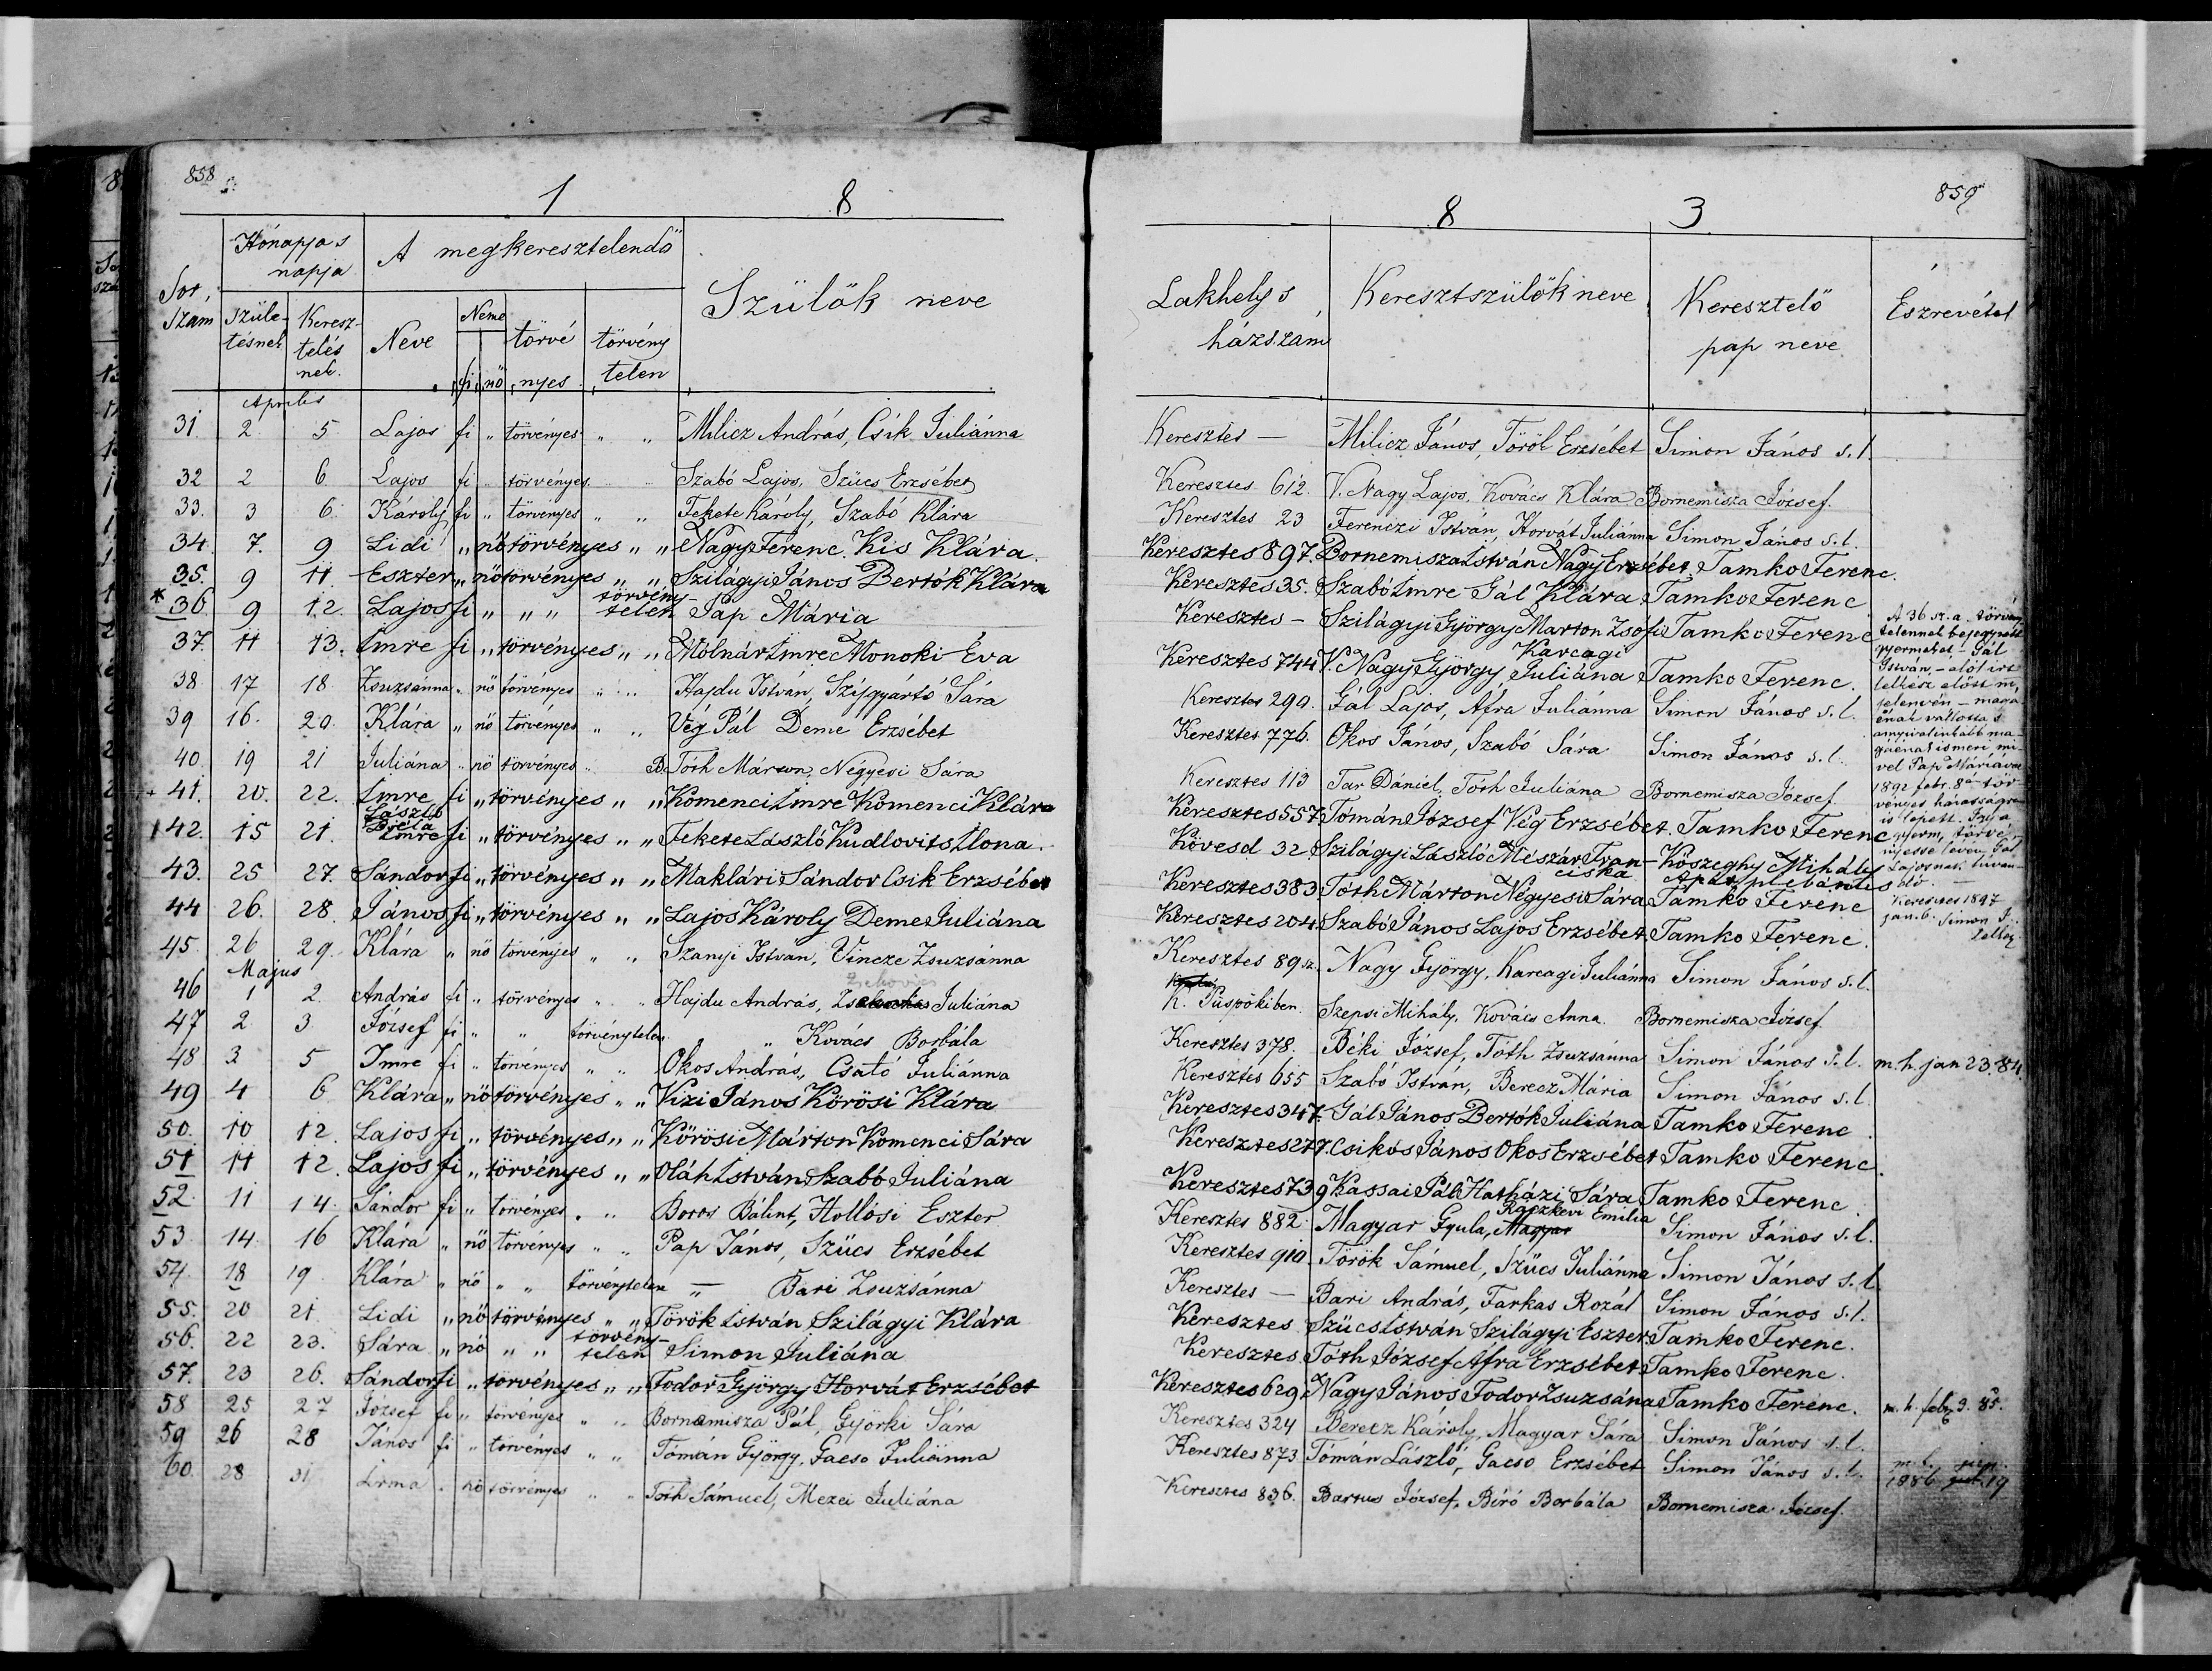 858
1 8
Sor, szam
Hónapja s napja
Születésnek
Keresztelésnek.
A megkeresztelendő
Neve
Neme
fi nő
törvényes
törvénytelen
Szülők neve
Aprilis
31. 2 5 Lajos fi „ törvényes „ „ Milicz András, Csík Juliánna
32 2 6 Lajos fi „ törvényes „ „ Szabó Lajos, Szücs Erzsébet
33. 3 6 Károly fi „ törvényes „ „ Fekete Károly, Szabó Klára
34. 7. 9 Lidi „ nő törvényes „ „ Nagy Ferenc. Kis Klára.
35. 9 11. Eszter „ nő törvényes „ „ Szilágyi János Bertók Klára
* 36 9 12. Lajos fi „ „ „ törvény-telen Pap Mária
37. 11 13. Imre fi „ törvényes „ „ Mólnár Imre Monoki Éva
38 17 18 Zsuzsánna „ nő törvényes „ „ Hajdu István, Szijgyártó Sára
39 16. 20. Klára „ nő törvényes „ „ Vég Pál Deme Erzsébet
40. 19 21 Juliána „ nő törvényes „ B. Tóth Márton, Négyesi Sára
+ 41. 20. 22. Imre fi „ törvényes „ „ Komenci Imre Komenci Klára
László Béla
42. 15 21. Imre fi „ törvényes „ „ Fekete László Kudlovits Ilona.
43. 25 27. Sándor fi „ törvényes „ „ Maklári Sándor Csik Erzsébet
44 26. 28. János fi „ törvényes „ „ Lajos Károly Deme Juliána
45. 26 29. Klára „ nő törvényes „ „ Szanyi István, Vincze Zsuzsánna
Majus
46 1 2. András fi „ törvényes „ „ Hajdu András, Juliána
47 2 3 József fi „ „ törvénytelen „ Kovács Borbála
48 3 5 Imre fi „ törvényes „ „ Okos András, Csató Juliánna
49 4 6 Klára „ nő törvényes „ „ Vizi János Körösi Klára
50. 10 12. Lajos fi „ törvényes „ „ Körösi Márton Komenci Sára
51 11 12. Lajos fi „ törvényes „ „ Oláh István Szabó Juliána
52. 11 14. Sándor fi „ törvényes „ „ Boros Bálint, Hollósi Eszter
53 14. 16 Klára „ nő törvényes „ „ Pap János, Szücs Erzsébet
54. 18 19. Klára „ nő „ „ törvénytelen „ — Bari Zsuzsánna
55. 20 21. Lidi „ nő törvényes „ „ Török István Szilágyi Klára
56. 22 23. Sára „ nő „ „ törvény-telen Simon Juliána
57. 23 26. Sándor fi „ törvényes „ „ Fodor György Horvát Erzsébet
58 25 27 József fi „ törvényes „ „ Bornemisza Pál, Györki Sára
59 26 28 János fi „ törvényes „ „ Tómán György, Gacso Juliánna
60. 28 31 Irma „ nő törvényes „ „ Tóth Sámuel, Mezei Juliána
859
8 3.
Lakhely s házszám
Keresztszülők neve
Keresztelő pap neve
Észrevétel
Keresztes — Milicz János, Töröl Erzsébet Simon János s. l.
Keresztes 612. V. Nagy Lajos, Kovács Klára Bornemisza József.
Keresztes 23 Ferenczi István, Horvát Juliánna Simon János s. l.
Keresztes 897. Bornemisza István Nagy Erzsébet Tamko Ferenc.
Keresztes 35. Szabó Imre Gál Klára Tamko Ferenc
Keresztes – Szilágyi György Marton Zsófi Tamko Ferenc
Karcagi
Keresztes 744 V. Nagy György Juliána Tamko Ferenc.
Keresztes 290. Gál Lajos, Áfra Juliánna Simon János s. l.
Keresztes 776. Okos János, Szabó Sára Simon János s. l.
Keresztes 113 Tar Dániel, Tóth Juliána Bornemisza József.
Keresztes 557 Tomán József Vég Erzsébet. Tamko Ferenc
Kövesd 32 Szilágyi László Mészár Fran-ciska Kőszeghy Mihály Apát plébános
Keresztes 383 Tóth Márton Négyesi Sára Tamko Ferenc
Keresztes 204. Szabó János Lajos Erzsébet. Tamko Ferenc.
Keresztes 89 sz. Nagy György, Karcagi Juliánna Simon János s. l.
K. Püspökiben. Szepsi Mihály, Kovács Anna. Bornemisza József.
Keresztes 378. Béki József, Tóth Zsuzsánna Simon János s. l. m. h. jan 23. 84.
Keresztes 655 Szabó István, Berecz Mária Simon János s. l.
Keresztes 347. Gál János Bertók Juliána Tamko Ferenc
Keresztes 277. Csikós János Okos Erzsébet Tamko Ferenc.
Keresztes 739 Kassai Pál Hatházi Sára Tamko Ferenc.
Ráczkevi Emilia
Keresztes 882 Magyar Gyula, Magyar Simon János s. l.
Keresztes 910. Török Sámuel, Szücs Juliánna Simon János s. l.
Keresztes — Bari András, Farkas Rozál Simon János s. l.
Keresztes Szücs István Szilágyi Eszter Tamko Ferenc.
Keresztes. Tóth József Áfra Erzsébet Tamko Ferenc.
Keresztes 629 Nagy János Fodor Zsuzsána Tamko Ferenc. m. h. feb. 9. 85.
Keresztes 324 Berecz Károly, Magyar Sára Simon János s. l.
Keresztes 873 Tómán László, Gacso Erzsébet Simon János s. l.
Keresztes 836. Bartus József, Biró Borbála Bornemisza József. 1886 19
A 36 sz. a. törvény
telennek bejegyzett
gyermeket – Gál
István, – alólirt
lelkész előtt m,
jelenvén – magá
énak vallotta s
annyival inkább ma-
gáénak ismeri mi-
vel Pap Máriával
1892 febr. 8án tör-
vényes házasságra
is lépett. Így a
gyerm, törvé-
nyessé levén Gál
Lajosnak
Keresztes 1897
jan. 6. Simon J.
lelkész